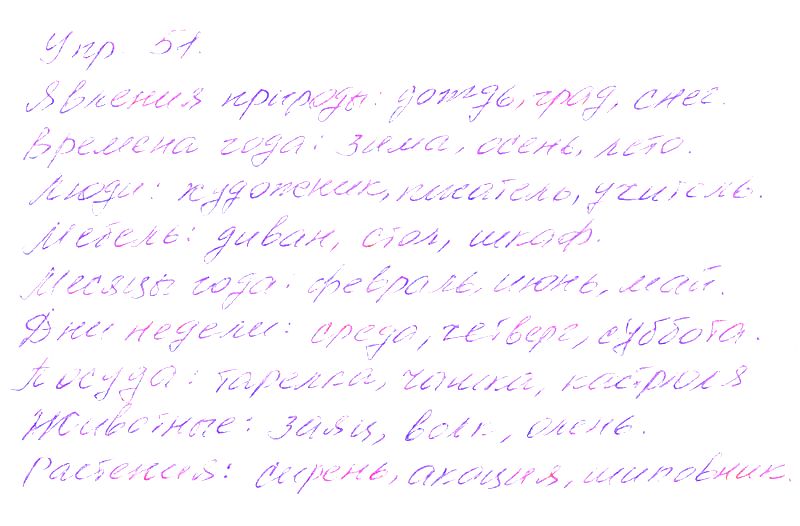 Упр 51.
Явления природы: дождь, град, снег.
Времена года: зима, осень, лето.
Люди: художник, писатель, учитель.
Мебель: диван, стол, шкаф.
Месяцы года: февраль, июнь, май.
Дни недели: среда, четверг, суббота.
Посуда: тарелка, чашка, кастрюля
Животные: заяц, волк, олень.
Растения: сирень, акация, шиповник.